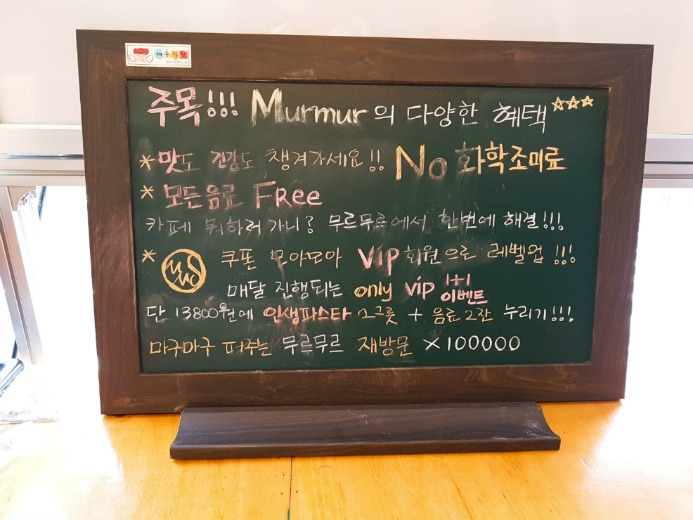 주목!!! Murmur의 다양한 혜택 ☆☆☆
* 맛도 건강도 챙겨가세요!! No 화학조미료
* 모든음료 Free
카페 뭐하러 가니? 무르무르에서 한번에 해결!!!
* 쿠폰 모아모아 VIP회원으로 레벨업 !!!
매달 진행되는 only vip 1+1 이벤트
단 13800원에 인생파스타 2그릇 + 음료2잔 누리기!!!
마구마구 퍼주는 무르무르 재방문 ×100000